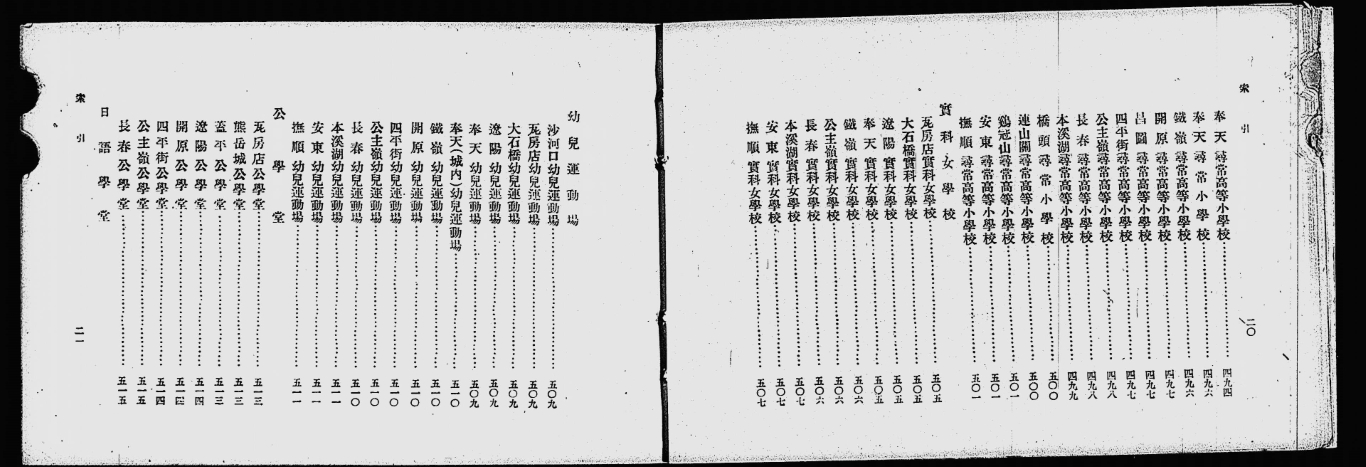 索引
二〇
奉天尋常高等小學校 四九四
奉天尋常小學校 四九六
鐵嶺尋常高等小學校 四九六
開原尋常高等小學校 四九七
昌圖尋常高等小學校 四九七
四平街尋常高等小學校 四九七
公主嶺尋常高等小學校 四九八
長春尋常高等小學校 四九八
本溪湖尋常高等小學校 四九九
橋頭尋常小學校 五〇〇
連山關尋常高等小學校 五〇〇
鷄冠山尋常高等小學校 五〇一
安東尋常高等小學校 五〇一
撫順尋常高等小學校 五〇一
實科女學校
瓦房店實科女學校 五〇五
大石橋實科女學校 五〇五
遼陽實科女學校 五〇五
奉天實科女學校 五〇五
鐵嶺實科女學校 五〇六
公主嶺實科女學校 五〇六
長春實科女學校 五〇六
本溪湖實科女學校 五〇七
安東實科女學校 五〇七
撫順實科女學校 五〇七
幼兒運動場
沙河口幼兒運動場 五〇九
瓦房店幼兒運動場 五〇九
大石橋幼兒運動場 五〇九
遼陽幼兒運動場 五〇九
奉天幼兒運動場 五〇九
奉天(城內)幼兒運動場 五一〇
鐵嶺幼兒運動場 五一〇
開原幼兒運動場 五一〇
四平街幼兒運動場 五一〇
公主嶺幼兒運動場 五一〇
長春幼兒運動場 五一〇
本溪湖幼兒運動場 五一一
安東幼兒運動場 五一一
撫順幼兒運動場 五一一
公學堂
瓦房店公學堂 五一三
熊岳城公學堂 五一三
蓋平公學堂 五一三
遼陽公學堂 五一四
開原公學堂 五一四
四平街公學堂 五一四
公主嶺公學堂 五一五
長春公學堂 五一五
日語學堂
索引
二一